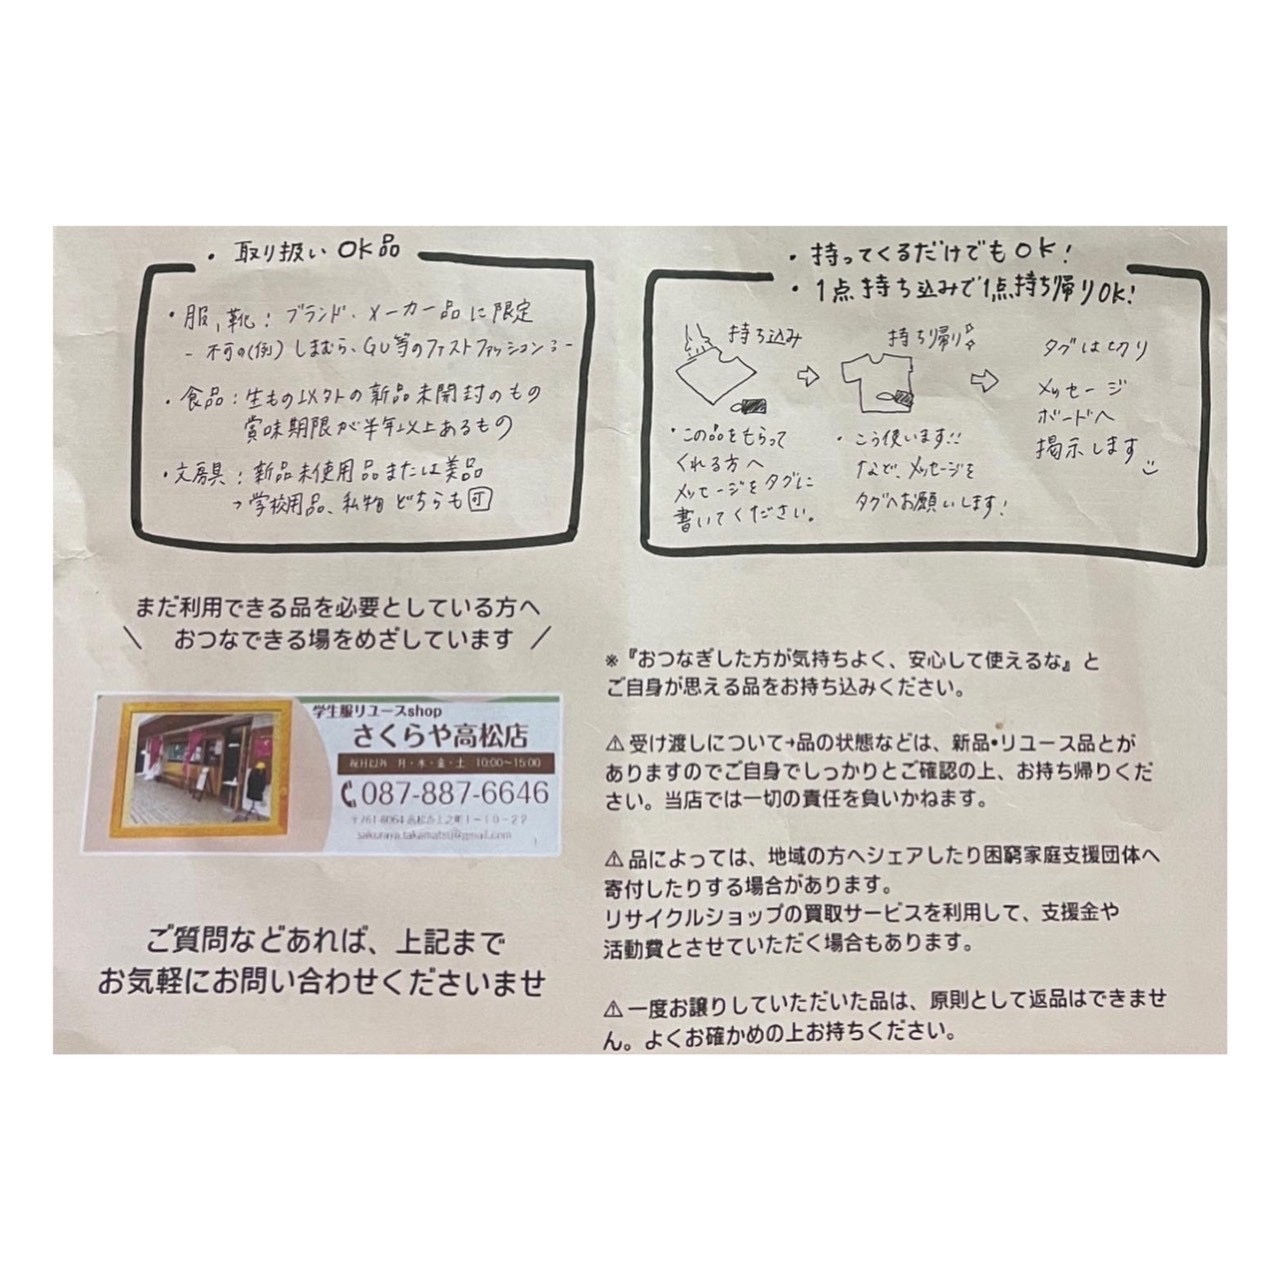 ・取り扱いOK品
・服、靴：ブランド・メーカー品に限定
- 不可の(例)しまむら、GU等のファストファッション
・食品：生もの以外の新品未開封のもの
賞味期限が半年以上あるもの
・文房具：新品未使用品または美品
→学校用品、私物どちらも可
・持ってくるだけでもOK!
・1点持ち込みで1点持ち帰りOK!
持ち込み
・この品をもらって
くれる方へ
メッセージをタグに
書いてください。
持ち帰り
・こう使います!!
など、メッセージを
タグへお願いします!
タグは切り
メッセージ
ボードへ
掲示します
まだ利用できる品を必要としている方へ
\ おつなできる場をめざしています /
学生服リユースshop
さくらや高松店
祝日以外 月・水・金・土 10:00~15:00
087-887-6646
〒761-8064 高松市上之町1-10-22
sakuraya.takamatsu@gmail.com
ご質問などあれば、上記まで
お気軽にお問い合わせくださいませ
※『おつなぎした方が気持ちよく、安心して使えるな』と
ご自身が思える品をお持ち込みください。
⚠受け渡しについて→品の状態などは、新品•リユース品とが
ありますのでご自身でしっかりとご確認の上、お持ち帰りくだ
さい。当店では一切の責任を負いかねます。
⚠品によっては、地域の方へシェアしたり困窮家庭支援団体へ
寄付したりする場合があります。
リサイクルショップの買取サービスを利用して、支援金や
活動費とさせていただく場合もあります。
⚠一度お譲りしていただいた品は、原則として返品はできませ
ん。よくお確かめの上お持ちください。